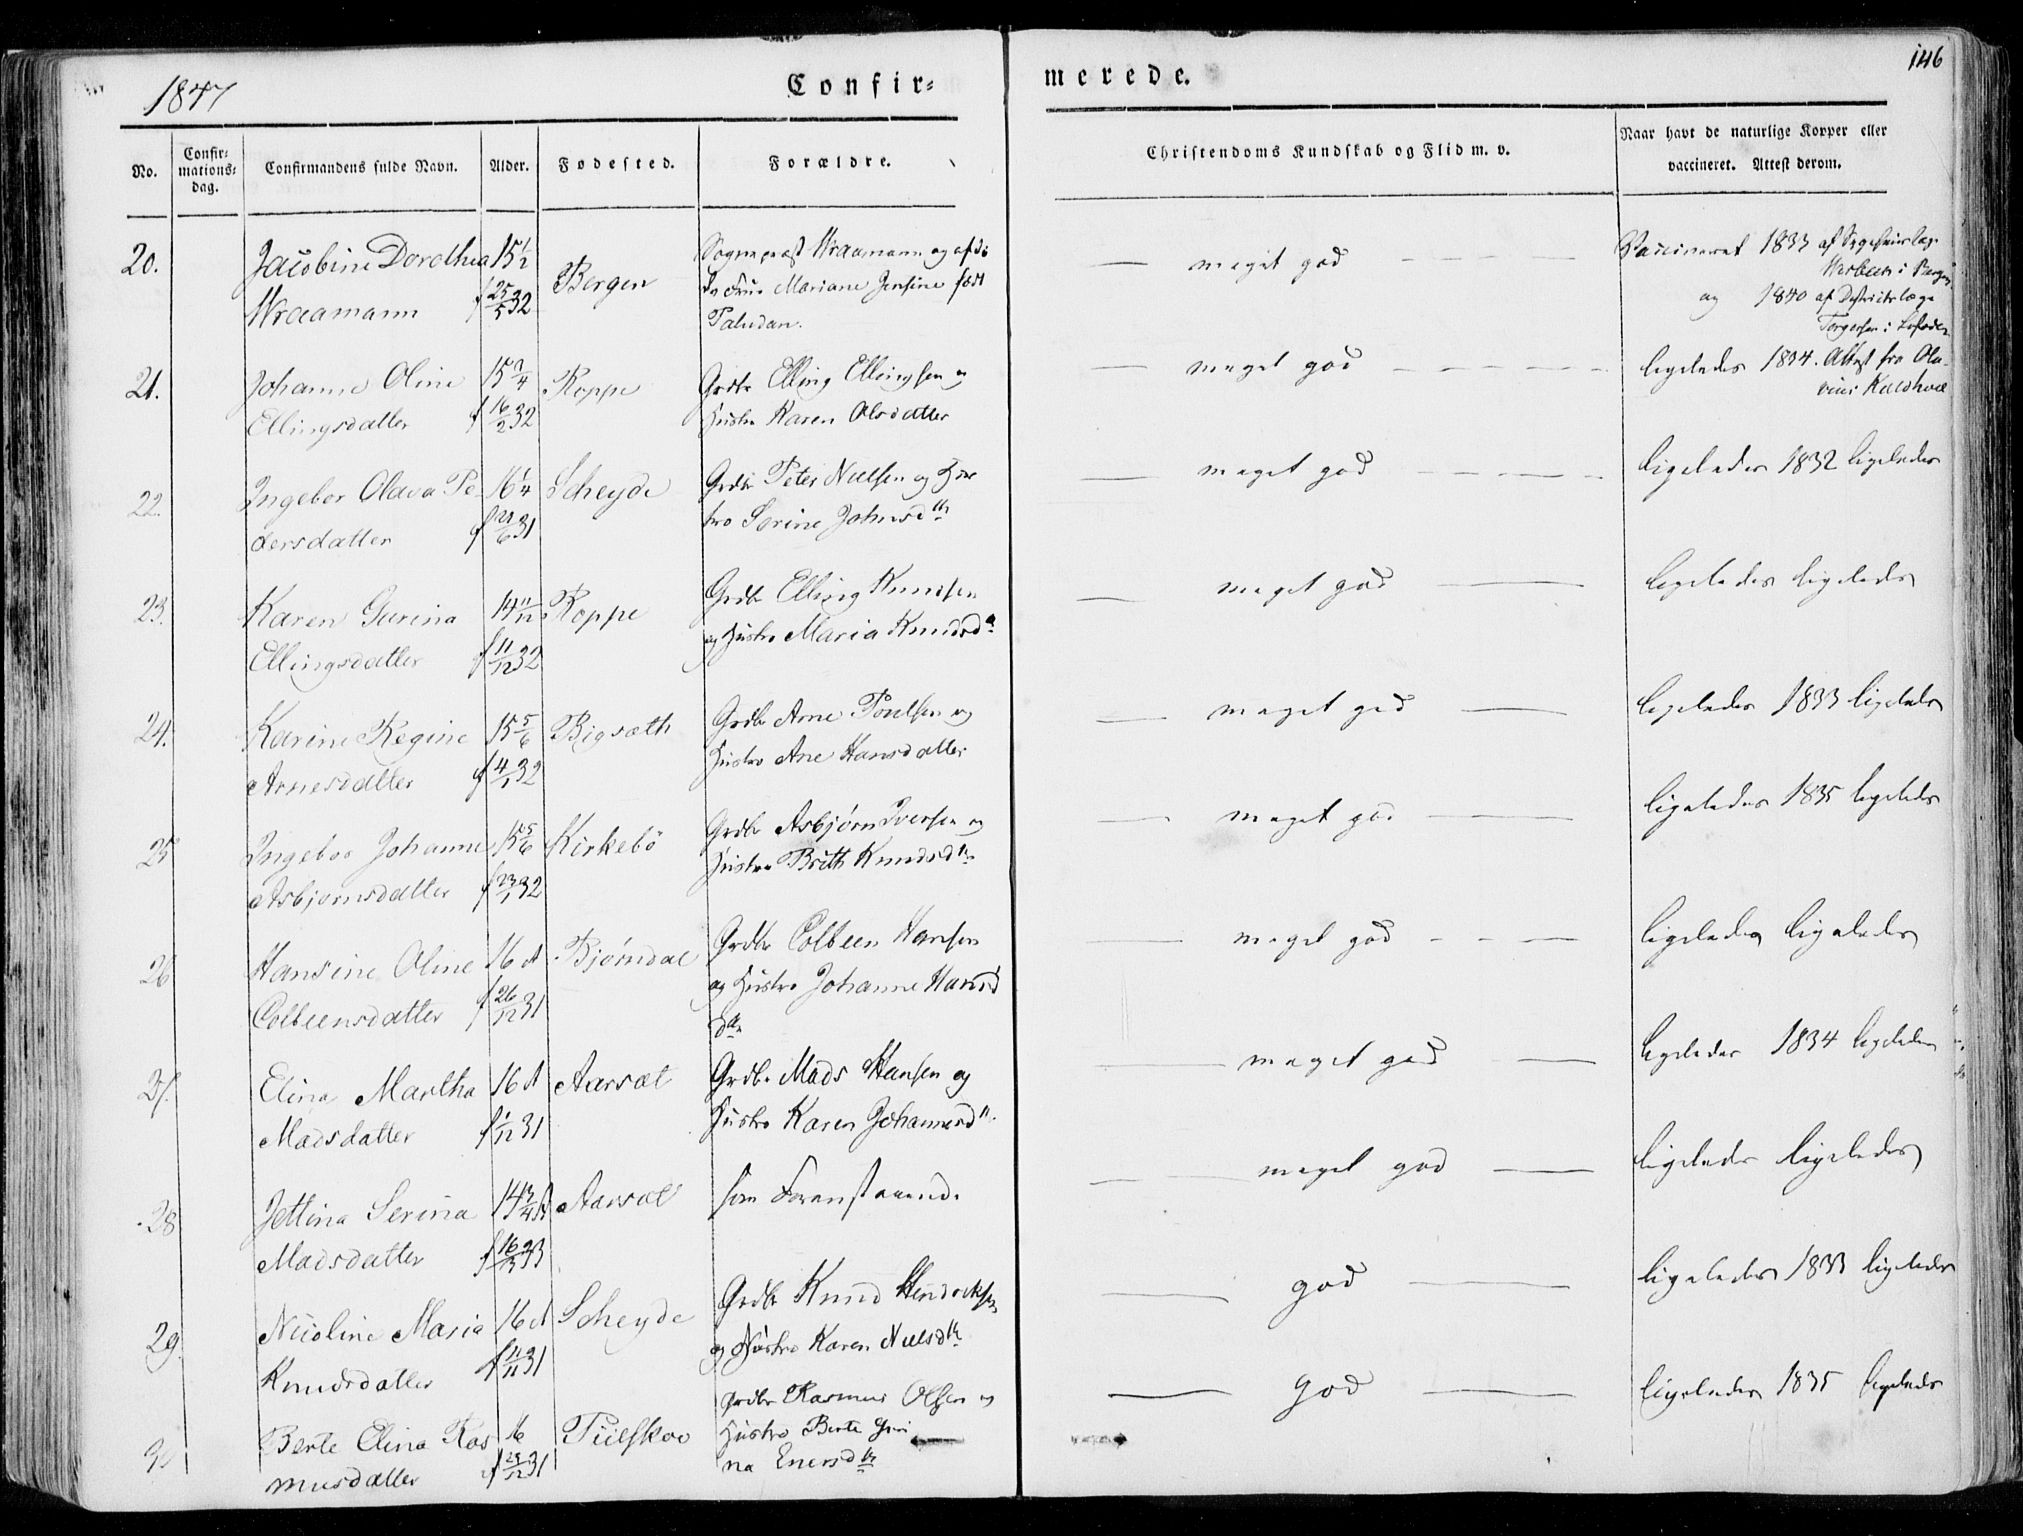 1847
Confir=
merede.
146
No.
Confir=
mations=
dag.
Confirmandens fulde Navn.
Alder.
Fødested.
Forældre.
Christendoms Kundskab og Flid m. v.
Naar havt de naturlige Kopper eller
vaccineret. Attest derom.
20.
Jacobine Dorothea
Wraamann
15 1/2
f 25/5 32
Bergen
Sognepræst Wraamann og
Frue Mariane Jensine født
Paludan.
meget god
Vaccineret 1833 af
i Bergen
og 1840 af Districtslæge
Torgersen i Lofoden
21.
Johanne Oline
Ellingsdatter
15 3/4
f 16/2 32
Roppe
Grdbr Elling Ellingsen og
Hustro Karen Olsdatter
meget god
ligeledes 1834. Attest fra Ola-
vius Kaldhoel
22.
Ingebor Olava Pe-
dersdatter
16 1/4
f 21/6 31
Scheyde
Grdbr Peter Nielsen og Hus
tro Serine Johnsdtr
meget god
ligeledes 1832 ligeledes
23.
Karen Gurina
Ellingsdatter
14 11/12
f 11/12 32
Roppe
Grdbr Elling Knudsen
og Hustro Maria Knudsdr
meget god
ligeledes ligeledes
24.
Karine Regine
Arnesdatter
15 5/6
f 4/1 32
Rigsæth
Grdbr Arne Poulsen og
Hustro Ane Hansdatter
meget god
ligeledes 1833 ligeledes
25
Ingebor Johanne
Asbjørnsdatter
15 5/6
f 23/1 32
Kirkebö
Grdbr Asbjørn Iversen og
Hustro Brith Knudsdtr
meget god
ligeledes 1835 ligeledes
26
Hansine Oline
Colbeensdatter
16 A
f 26/12 31
Bjørndal
Grdbr Colbeen Hansen
og Hustro Johanne Hansd
dtr
meget god
ligeledes ligeledes
27.
Elina Martha
Madsdatter
16 A
f 1/12 31
Aarsæt
Grdbr Mads Hansen og
Hustro Karen Johannesdtr
meget god
ligeledes 1834 ligeledes
28
Jettina Serina
Madsdatter
14 3/4 A
f 16/2 33
Aarsæt
som Foranstaaende
meget god
ligeledes ligeledes
29.
Nicoline Maria
Knudsdatter
16 A
f 11/11 31
Scheyde
Grdbr Knud Hendricksen
og Hustro Karen Nielsdtr
god
ligeledes 1833 ligeledes
Berte Elina Ras
musdatter
16
f 29/12 31
Grdbr Rasmus Olsen og
Hustro Berte Gju
na Enersdtr
god
ligeledes 1835 ligeledes